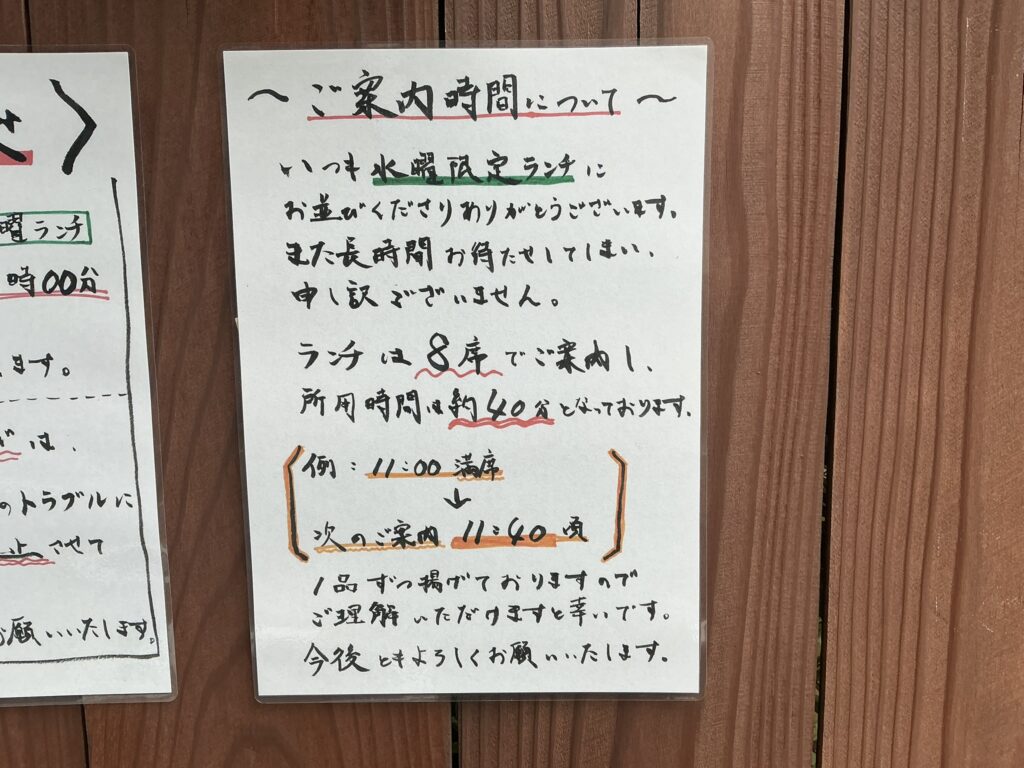 せ〉
曜ランチ
時00分
ます。
は、
のトラブルに
止させて
お願いいたします。
～ご案内時間について～
いつも水曜限定ランチに
お並びくださりありがとうございます。
また長時間お待たせしてしまい、
申し訳ございません。
ランチは8席でご案内し、
所用時間は約40分となっております。
例：11:00満席
↓
次のご案内 11:40頃
1品ずつ揚げておりますので
ご理解いただけますと幸いです。
今後ともよろしくお願いいたします。